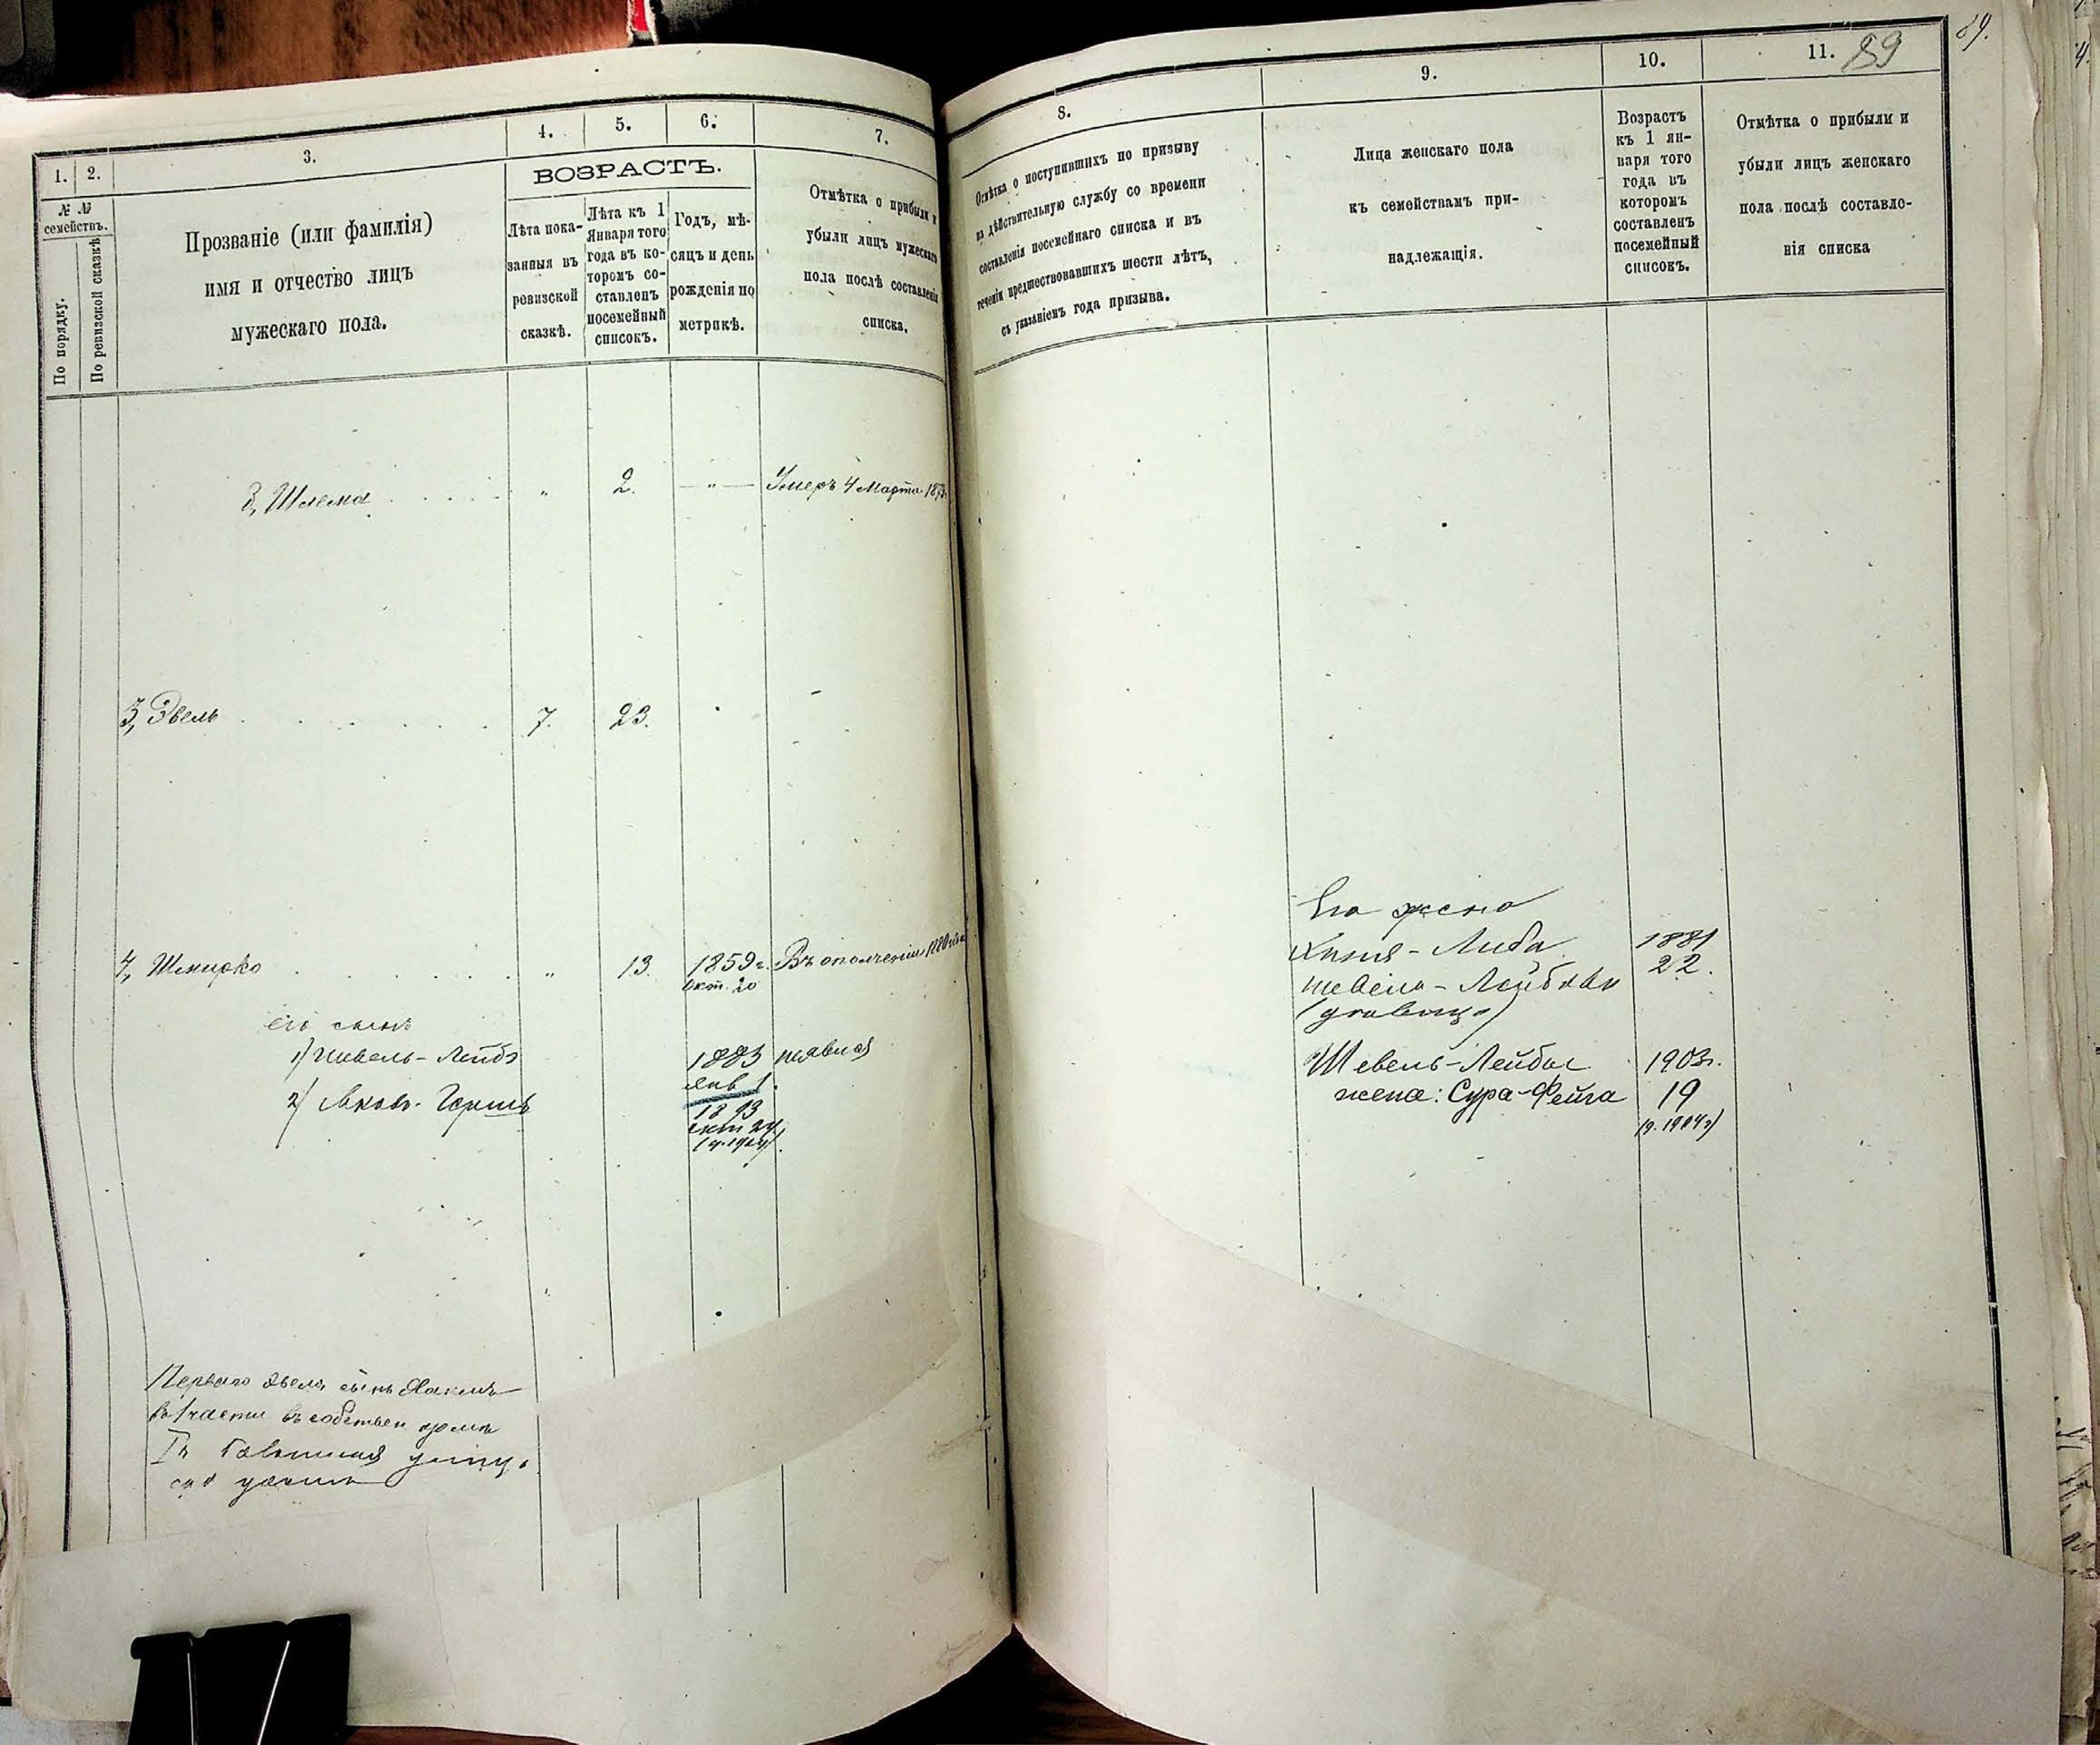 1.
2.
3.
4.
5.
6.
7.
№ №
семействъ.
По порядку.
По ревизской сказкѣ
Прозваніе (или фамилія)
имя и отчество лицъ
мужескаго пола.
ВОЗРАСТЪ.
Лѣта пока-
занныя въ
ревизской
сказкѣ.
Лѣта къ 1
Января того
года въ ко-
торомъ со-
ставленъ
посемейный
списокъ.
Годъ, мѣ-
сяцъ и день
рожденія по
метрикѣ.
Отмѣтка о прибыли и
убыли лицъ мужескаго
пола послѣ составленія
списка.
3, Шлема
"
2.
"
Умеръ 4 Марта 187
3, Эвель
7.
23.
4, Шмирко
"
13.
1859 г.
Окт. 20
Въ ополченіи 1880
его сынъ
1) Шевель-Лейба
1883
Янв 1.
неявился
2) Янкель-Гершъ
1893
окт 24
Перваго Эвеля сынъ
8.
9.
10.
11. 89
89.
Отмѣтка о поступившихъ по призыву
на дѣйствительную службу со времени
составленія посемейнаго списка и въ
теченіи предшествовавшихъ шести лѣтъ,
съ указаніемъ года призыва.
Лица женскаго пола
къ семействамъ при-
надлежащія.
Возрастъ
къ 1 ян-
варя того
года въ
которомъ
составленъ
посемейный
списокъ.
Отмѣтка о прибыли и
убыли лицъ женскаго
пола послѣ составле-
нія списка
Его жена
Либа
1881
22.
Шевель-Лейбы
1903г.
жена: Сура-Фейга
19